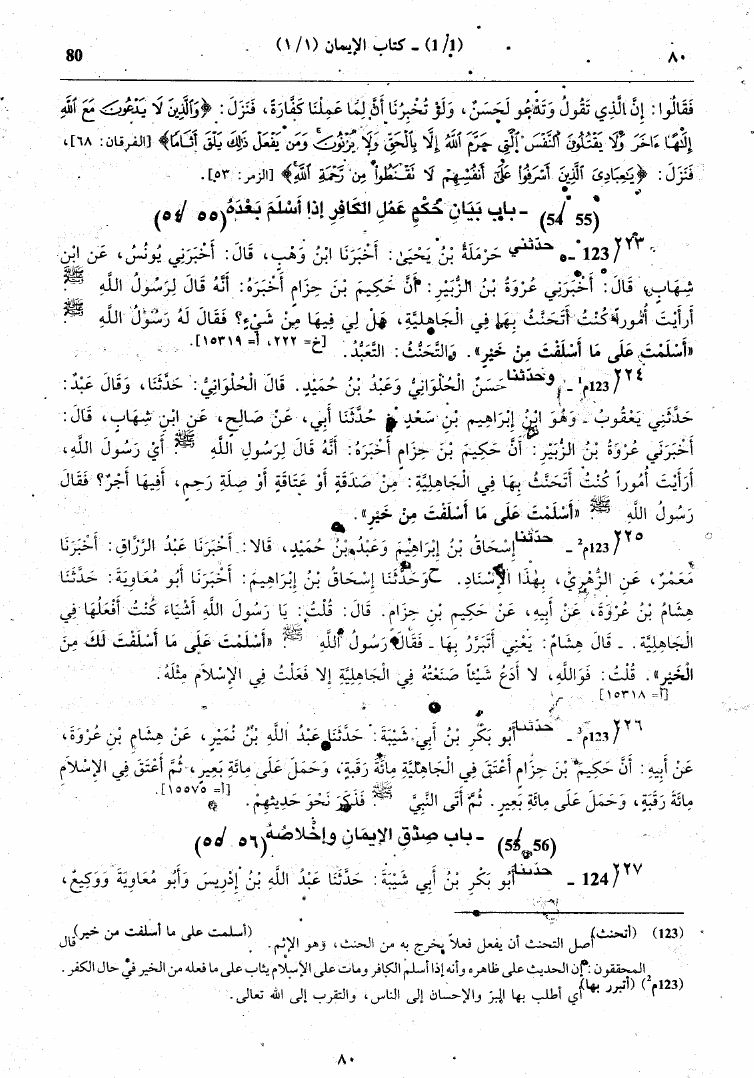 80 (1/1) ـ كتاب الإيمان (١/١) ٨٠
فَقَالُوا: إِنَّ الَّذِي تَقُولُ وَتَدْعُو لَحَسَنٌ، وَلَوْ تُخْبِرُنَا أَنَّ لِمَا عَمِلْنَا كَفَّارَةً، فَنَزَلَ: ﴿وَالَّذِينَ لَا يَدْعُونَ مَعَ اللَّهِ
إِلَٰهًا ءَاخَرَ وَلَا يَقْتُلُونَ النَّفْسَ الَّتِي حَرَّمَ اللَّهُ إِلَّا بِالْحَقِّ وَلَا يَزْنُونَ وَمَن يَفْعَلْ ذَٰلِكَ يَلْقَ أَثَامًا﴾ [الفرقان: ٦٨]،
فَنَزَلَ: ﴿يَٰعِبَادِيَ الَّذِينَ أَسْرَفُوا عَلَىٰ أَنفُسِهِمْ لَا تَقْنَطُوا مِن رَّحْمَةِ اللَّهِ﴾ [الزمر: ٥٣].
(54 55) ـ باب بَيَانِ حُكْمِ عَمَلِ الكَافِرِ إِذَا أَسْلَمَ بَعْدَهُ (٥٥ ٥٤)
٢٢٣/123 ـ حدّثني حَرْمَلَةُ بْنُ يَحْيَىٰ: أَخْبَرَنَا ابْنُ وَهْبٍ، قَالَ: أَخْبَرَنِي يُونُسُ، عَنِ ابْنِ
شِهَابٍ، قَالَ: أَخْبَرَنِي عُرْوَةُ بْنُ الزُّبَيْرِ: أَنَّ حَكِيمَ بْنَ حِزَامٍ أَخْبَرَهُ: أَنَّهُ قَالَ لِرَسُولُ اللَّهِ ﷺ:
أَرَأَيْتَ أُمُوراً كُنْتُ أَتَحَنَّثُ بِهَا فِي الْجَاهِلِيَّةِ، هَلْ لِي فِيهَا مِنْ شَيْءٍ؟ فَقَالَ لَهُ رَسُولُ اللَّهِ ﷺ:
«أَسْلَمْتَ عَلَى مَا أَسْلَفْتَ مِنْ خَيْرٍ». وَالتَّحَنُّثُ: التَّعَبُّدُ. [خ= ٢٢٢، أ= ١٥٣١٩].
٢٢٤/123م¹ ـ وحدّثنا حَسَنٌ الْحُلْوَانِيُّ وَعَبْدُ بْنُ حُمَيْدٍ. قَالَ الْحُلْوَانِيُّ: حَدَّثَنَا، وَقَالَ عَبْدٌ:
حَدَّثَنِي يَعْقُوبُ ـ وَهُوَ ابْنُ إِبْرَاهِيمَ بْنِ سَعْدٍ ـ: حَدَّثَنَا أَبِي، عَنْ صَالِحٍ، عَنِ ابْنِ شِهَابٍ، قَالَ:
أَخْبَرَنِي عُرْوَةُ بْنُ الزُّبَيْرِ: أَنَّ حَكِيمَ بْنَ حِزَامٍ أَخْبَرَهُ: أَنَّهُ قَالَ لِرَسُولِ اللَّهِ ﷺ: أَيْ رَسُولَ اللَّهِ،
أَرَأَيْتَ أُمُوراً كُنْتُ أَتَحَنَّثُ بِهَا فِي الْجَاهِلِيَّةِ: مِنْ صَدَقَةٍ أَوْ عَتَاقَةٍ أَوْ صِلَةِ رَحِمٍ، أَفِيهَا أَجْرٌ؟ فَقَالَ
رَسُولُ اللَّهِ ﷺ: «أَسْلَمْتَ عَلَى مَا أَسْلَفْتَ مِنْ خَيْرٍ».
٢٢٥/123م² ـ حدّثنا إِسْحَاقُ بْنُ إِبْرَاهِيمَ وَعَبْدُ بْنُ حُمَيْدٍ، قَالَا: أَخْبَرَنَا عَبْدُ الرَّزَّاقِ: أَخْبَرَنَا
مَعْمَرٌ، عَنِ الزُّهْرِيِّ، بِهَذَا الإِسْنَادِ. ح وَحَدَّثَنَا إِسْحَاقُ بْنُ إِبْرَاهِيمَ: أَخْبَرَنَا أَبُو مُعَاوِيَةَ: حَدَّثَنَا
هِشَامُ بْنُ عُرْوَةَ، عَنْ أَبِيهِ، عَنْ حَكِيمِ بْنِ حِزَامٍ. قَالَ: قُلْتُ: يَا رَسُولَ اللَّهِ أَشْيَاءَ كُنْتُ أَفْعَلُهَا فِي
الْجَاهِلِيَّةِ. ـ قَالَ هِشَامٌ: يَعْنِي أَتَبَرَّرُ بِهَا ـ فَقَالَ رَسُولُ اللَّهِ ﷺ: «أَسْلَمْتَ عَلَى مَا أَسْلَفْتَ لَكَ مِنَ
الْخَيْرِ». قُلْتُ: فَوَاللَّهِ، لَا أَدَعُ شَيْئاً صَنَعْتُهُ فِي الْجَاهِلِيَّةِ إِلا فَعَلْتُ فِي الإِسْلَامِ مِثْلَهُ.
[أ= ١٥٣١٨]
٢٢٦/123م³ ـ حدّثنا أَبُو بَكْرِ بْنُ أَبِي شَيْبَةَ: حَدَّثَنَا عَبْدُ اللَّهِ بْنُ نُمَيْرٍ، عَنْ هِشَامِ بْنِ عُرْوَةَ،
عَنْ أَبِيهِ: أَنَّ حَكِيمَ بْنَ حِزَامٍ أَعْتَقَ فِي الْجَاهِلِيَّةِ مِائَةَ رَقَبَةٍ، وَحَمَلَ عَلَى مِائَةِ بَعِيرٍ، ثُمَّ أَعْتَقَ فِي الإِسْلَامِ
مِائَةَ رَقَبَةٍ، وَحَمَلَ عَلَى مِائَةِ بَعِيرٍ. ثُمَّ أَتَى النَّبِيَّ ﷺ: فَذَكَرَ نَحْوَ حَدِيثِهِمْ. [أ= ١٥٥٧٥].
(55 56) ـ باب صِدْقِ الإِيمَانِ وَإِخْلَاصُهُ (٥٦ ٥٥)
٢٢٧/124 ـ حدّثنا أَبُو بَكْرِ بْنُ أَبِي شَيْبَةَ: حَدَّثَنَا عَبْدُ اللَّهِ بْنُ إِدْرِيسَ وَأَبُو مُعَاوِيَةَ وَوَكِيعٌ،
(123) (أتحنث) أصل التحنث أن يفعل فعلاً يخرج به من الحنث، وهو الإثم. (أسلمت على ما أسلفت من خير) قال
المحققون: إن الحديث على ظاهره وأنه إذا أسلم الكافر ومات على الإسلام يثاب على ما فعله من الخير في حال الكفر.
(123م²) (أتبرر بها) أي أطلب بها البِرَّ والإحسان إلى الناس، والتقرب إلى الله تعالى.
٨٠